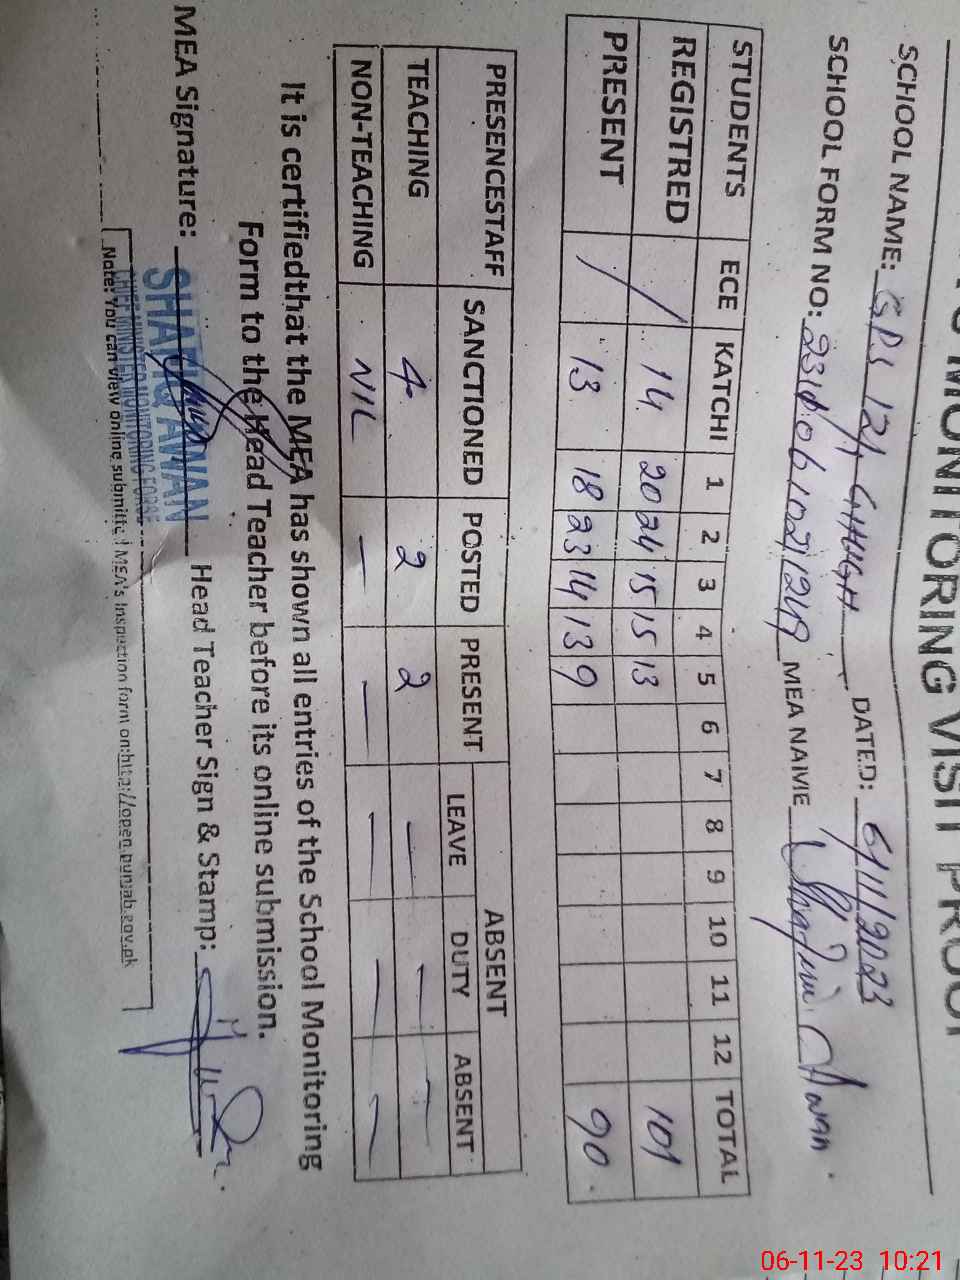 MONITORING VISIT PROOF
SCHOOL NAME: GPS 121 CHHUGH DATED: 6/11/2023
SCHOOL FORM NO: MEA NAME Awan.
STUDENTS ECE KATCHI 1 2 3 4 5 6 7 8 9 10 11 12 TOTAL
REGISTRED / 14 20 24 15 15 13 101
PRESENT / 13 18 23 14 13 9 90.
PRESENCESTAFF SANCTIONED POSTED PRESENT ABSENT
LEAVE DUTY ABSENT
TEACHING 4 2 2 — — —
NON-TEACHING NIL — — — — —
It is certifiedthat the MEA has shown all entries of the School Monitoring
Form to the Head Teacher before its online submission.
MEA Signature: Head Teacher Sign & Stamp:
SHAFIQ AWAN
CHIEF MINISTER MONITORING FORCE
Note: You can view online submitted MEA's Inspection form on:http://open.punjab.gov.pk
06-11-23 10:21